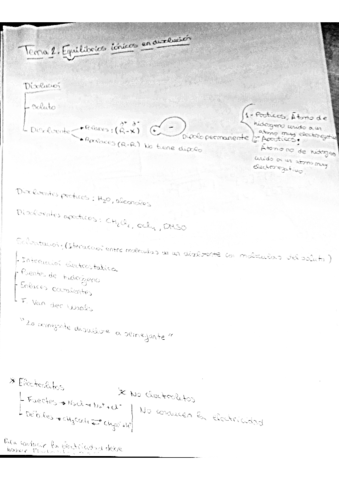 Tema 2: Equilibrios iónicos en disolución
Disolución
Soluto
Disolvente
Polares (A-X)
Dipolo permanente
Apolares (A-A) No tiene dipolo
1- Próticos: Átomo de
hidrógeno unido a un
átomo muy electronegativo
Apróticos:
Átomo no de hidrógeno
unido a un átomo muy
electronegativo
Disolventes próticos: H2O, alcoholes
Disolventes apróticos: DMSO
Solvatación: (Interacción entre moléculas de un disolvente las moléculas del soluto)
Interacción electrostática
Puentes de hidrógeno
Enlaces covalentes
F. Van der Waals
"Lo semejante disuelve a semejante"
* Electrolitos
Fuertes → NaCl → Na+ + Cl-
Débiles →
* No electrolitos
No conducen la electricidad
Para conducir la electricidad debe